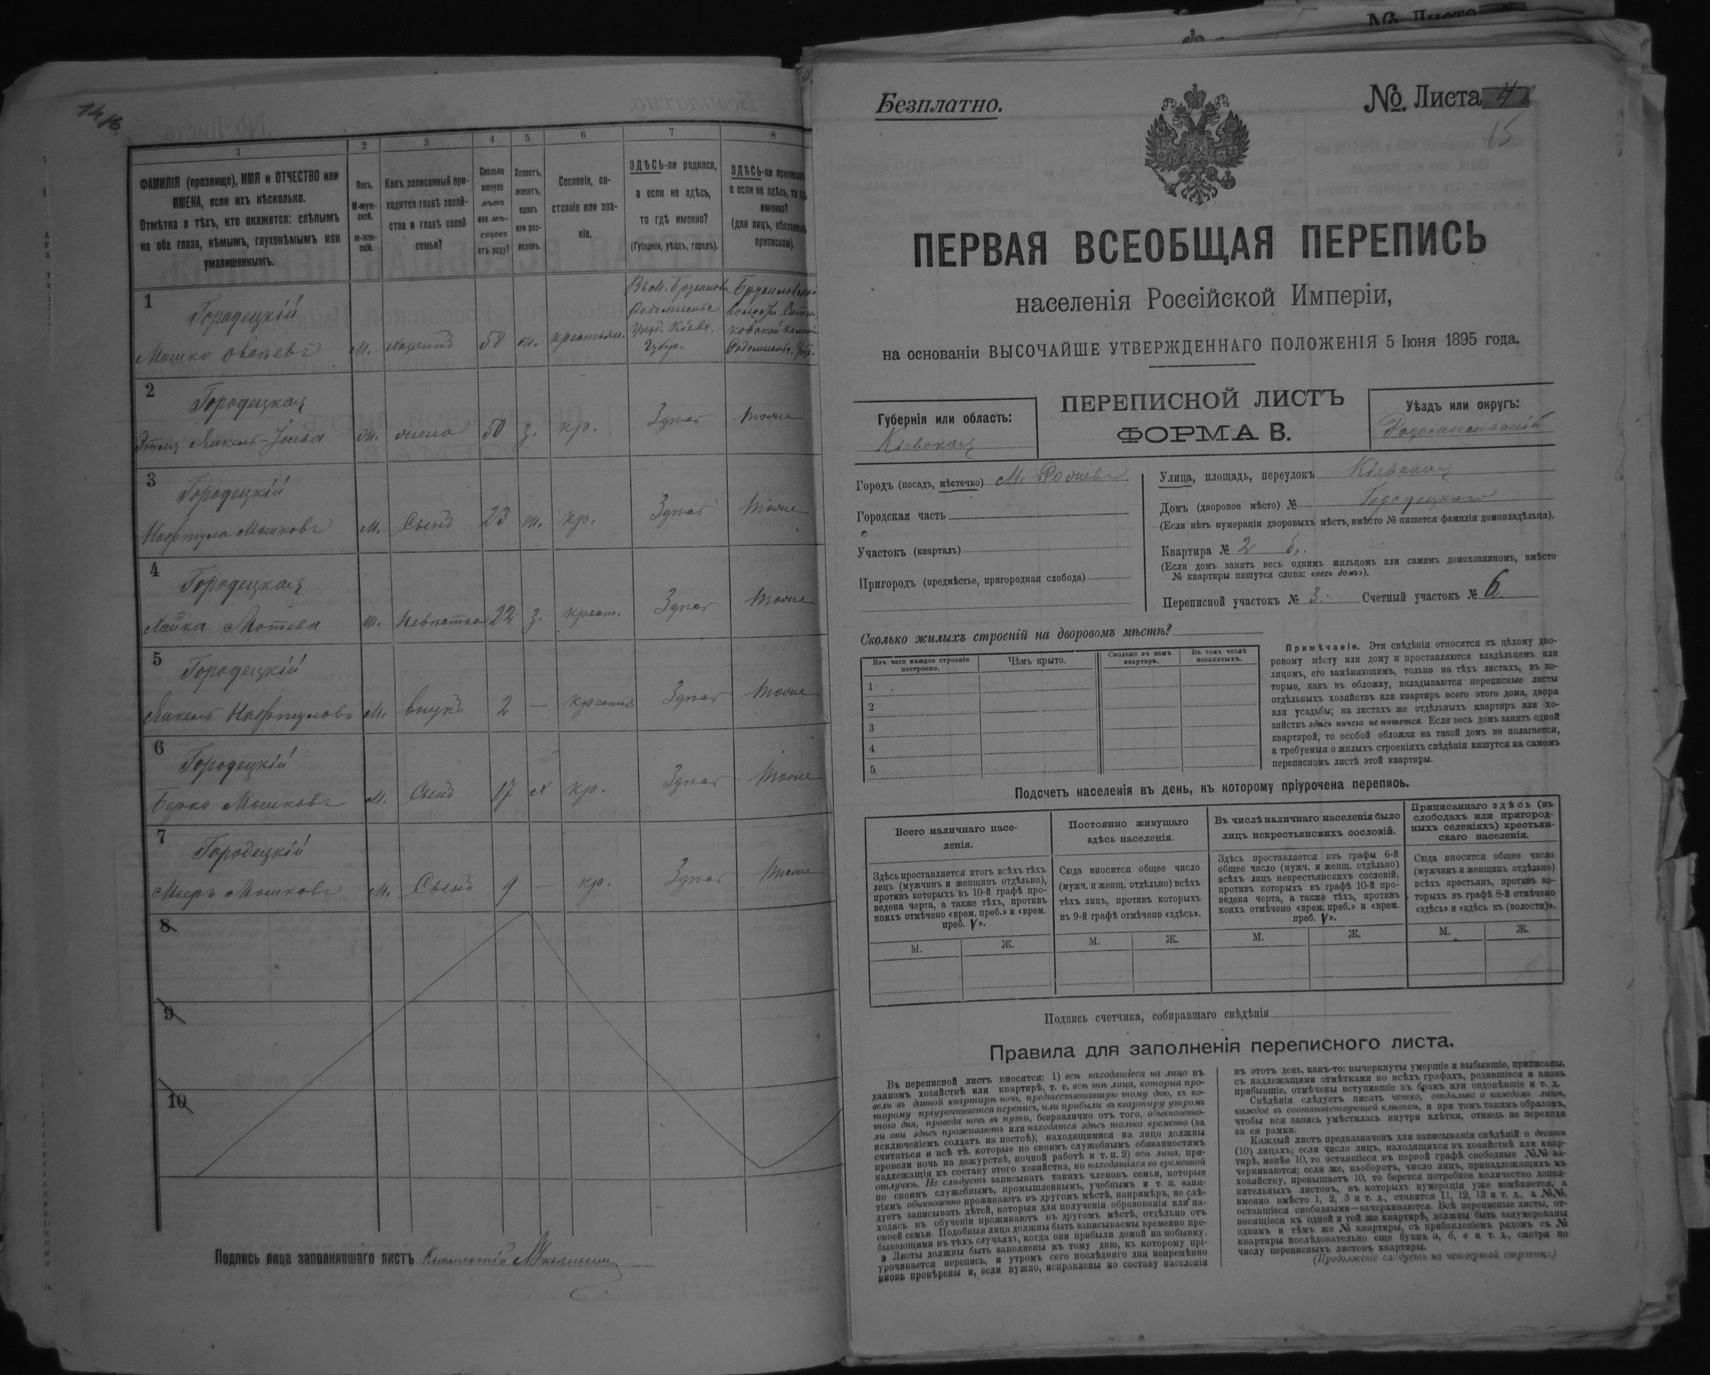 1 2 3 4 5 6 7 8
ФАМИЛІЯ (прозвище), ИМЯ и ОТЧЕСТВО или
ИМЕНА, если ихъ нѣсколько.
Отмѣтка о тѣхъ, кто окажется: слѣпымъ
на оба глаза, нѣмымъ, глухонѣмымъ или
умалишеннымъ.
Полъ.
М-муж-
ской.
ж-жен-
скій.
Какъ записанный при-
ходится главѣ хозяй-
ства и главѣ своей
семьи?
Сколько
минуло
лѣтъ
или мѣ-
сяцевъ
отъ роду?
Холостъ,
женатъ,
вдовъ
или раз-
веденъ.
Сословіе, со-
стояніе или зва-
ніе.
ЗДѢСЬ-ли родился,
а если не здѣсь,
то гдѣ именно?
(Губернія, уѣздъ, городъ).
ЗДѢСЬ-ли приписанъ
а если не здѣсь, то гдѣ
именно?
(для лицъ, обязанныхъ
припискою).
1 Городецкій
Мошко м. 58 ж.
Кіевс.
Губер.
2 Городецкая
50 з. кр. Здѣсь тоже
3 Городецкій
Мошковъ м. Сынъ 23 ж. кр. Здѣсь тоже
4 Городецкая
Хайка Мотева ж. Невѣстка 22 з. крест. Здѣсь тоже
5 Городецкій
м. внукъ 2 — Здѣсь тоже
6 Городецкій
Берко Мошковъ м. Сынъ 17 х кр. Здѣсь тоже
7 Городецкій
Мееръ Мошковъ м. Сынъ 9 кр. Здѣсь тоже
8
9
10
Подпись лица заполнявшего листъ
Безплатно.
№ Листа 4
15
ПЕРВАЯ ВСЕОБЩАЯ ПЕРЕПИСЬ
населенія Россійской Имперіи,
на основаніи ВЫСОЧАЙШЕ УТВЕРЖДЕННАГО ПОЛОЖЕНІЯ 5 Іюня 1895 года.
ПЕРЕПИСНОЙ ЛИСТЪ
ФОРМА В.
Губернія или область:
Кіевская
Уѣздъ или округъ:
Городъ (посадъ, мѣстечко) М.
Городская часть
Участокъ (кварталъ)
Пригородъ (предмѣстье, пригородная слобода)
Улица, площадь, переулокъ Кіевская
Домъ (дворовое мѣсто) № Городецкаго
(Если нѣтъ нумераціи дворовыхъ мѣстъ, вмѣсто № пишется фамилія домовладѣльца).
Квартира № 2
(Если домъ занятъ весь однимъ жильцомъ или самимъ домохозяиномъ, вмѣсто
№ квартиры пишутся слова: «весь домъ»).
Переписной участокъ № 3. Счетный участокъ № 6.
Сколько жилыхъ строеній на дворовомъ мѣстѣ?
Изъ чего каждое строеніе
построено.
Чѣмъ крыто.
Сколько въ немъ
квартиръ.
Въ томъ числѣ
незанятыхъ.
1
2
3
4
5
Примѣчаніе. Эти свѣдѣнія относятся къ цѣлому дво-
ровому мѣсту или дому и проставляются владѣльцемъ или
лицомъ, его замѣняющимъ, только на тѣхъ листахъ, въ ко-
торые, какъ въ обложку, вкладываются переписные листы
отдѣльныхъ хозяйствъ или квартиръ всего этого дома, двора
или усадьбы; на листахъ же отдѣльныхъ квартиръ или хо-
зяйствъ здѣсь ничего не пишется. Если весь домъ занятъ одной
квартирой, то особой обложки на такой домъ не полагается,
а требуемыя о жилыхъ строеніяхъ свѣдѣнія пишутся на самомъ
переписномъ листѣ этой квартиры.
Подсчетъ населенія въ день, къ которому пріурочена перепись.
Всего наличнаго насе-
ленія.
Здѣсь проставляется итогъ всѣхъ тѣхъ
лицъ (мужчинъ и женщинъ отдѣльно),
противъ которыхъ въ 10-й графѣ про-
ведена черта, а также тѣхъ, противъ
коихъ отмѣчено «врем. преб.» и «врем.
преб. V».
Постоянно живущаго
здѣсь населенія.
Сюда вносится общее число
(мужч. и женщ. отдѣльно) всѣхъ
тѣхъ лицъ, противъ которыхъ
въ 9-й графѣ отмѣчено «здѣсь».
Въ числѣ наличнаго населенія было
лицъ некрестьянскихъ сословій.
Здѣсь проставляется изъ графы 6-й
общее число (мужч. и женщ. отдѣльно)
всѣхъ лицъ некрестьянскихъ сословій,
противъ которыхъ въ графѣ 10-й про-
ведена черта, а также тѣхъ, противъ
коихъ отмѣчено «врем. преб.» и «врем.
преб. V».
Приписаннаго здѣсь (въ
слободахъ или пригород-
ныхъ селеніяхъ) крестьян-
скаго населенія.
Сюда вносится общее число
(мужчинъ и женщинъ отдѣльно)
всѣхъ крестьянъ, противъ ко-
торыхъ въ графѣ 8-й отмѣчено
«здѣсь» и «здѣсь къ (волости)».
М. Ж. М. Ж. М. Ж. М. Ж.
Подпись счетчика, собиравшаго свѣдѣнія
Правила для заполненія переписного листа.
Въ переписной листъ вносятся: 1) всѣ находящіеся на лицо въ
данномъ хозяйствѣ или квартирѣ, т. е. всѣ тѣ лица, которыя про-
вели въ данной квартирѣ ночь, предшествовавшую тому дню, къ ко-
торому пріурочивается перепись, или прибыли въ квартиру утромъ
того дня, проведя ночь въ пути, безразлично отъ того, обыкновенно-
ли они здѣсь проживаютъ или находятся здѣсь только временно (за
исключеніемъ солдатъ на постоѣ); находящимися на лицо должны
считаться и всѣ тѣ, которые по своимъ служебнымъ обязанностямъ
провели ночь на дежурствѣ, ночной работѣ и т. п. 2) всѣ лица, при-
надлежащія къ составу этого хозяйства, но находящіяся во временной
отлучкѣ. Не слѣдуетъ записывать такихъ членовъ семьи, которые
по своимъ служебнымъ, промышленнымъ, учебнымъ и т. п. заня-
тіямъ обыкновенно проживаютъ въ другомъ мѣстѣ, напримѣръ, не слѣ-
дуетъ записывать дѣтей, которыя для полученія образованія или на-
ходясь въ обученіи проживаютъ въ другомъ мѣстѣ, отдѣльно отъ
своей семьи. Подобныя лица должны быть записываемы временно пре-
бывающими въ тѣхъ случаяхъ, когда они прибыли домой на побывку.
Листы должны быть заполнены къ тому дню, къ которому прі-
урочивается перепись, и утромъ сего послѣдняго дня непремѣнно
вновь провѣрены и, если нужно, исправлены по составу населенія
въ этотъ день, какъ-то: вычеркнуты умершіе и выбывшіе, приписаны,
съ надлежащими отмѣтками во всѣхъ графахъ, родившіеся и вновь
прибывшіе, отмѣчены вступившіе въ бракъ или овдовѣвшіе и т. д.
Свѣдѣнія слѣдуетъ писать четко, отдѣльно о каждомъ лицѣ,
каждое въ соотвѣтствующей клѣткѣ, и при томъ такимъ образомъ,
чтобы вся запись умѣстилась внутри клѣтки, отнюдь не переходя
за ея рамки.
Каждый листъ предназначенъ для записыванія свѣдѣній о десяти
(10) лицахъ; если число лицъ, находящихся въ хозяйствѣ или квар-
тирѣ, менѣе 10, то оставшіеся въ первой графѣ свободные №№ за-
черкиваются; если же, наоборотъ, число лицъ, принадлежащихъ къ
хозяйству, превышаетъ 10, то берется потребное количество допол-
нительныхъ листовъ, въ которыхъ нумерація уже измѣняется, а
именно вмѣсто 1, 2, 3 и т. д., ставится 11, 12, 13 и т. д., а №№,
оставшіеся свободными—зачеркиваются. Всѣ переписные листы, от-
носящіеся къ одной и той же квартирѣ, должны быть занумерованы
однимъ и тѣмъ же № квартиры, съ прибавленіемъ рядомъ съ №
квартиры послѣдовательно еще буквъ а, б, в и т. д., смотря по
числу переписныхъ листовъ квартиры.
(Продолженіе слѣдуетъ на четвертой страницѣ.)